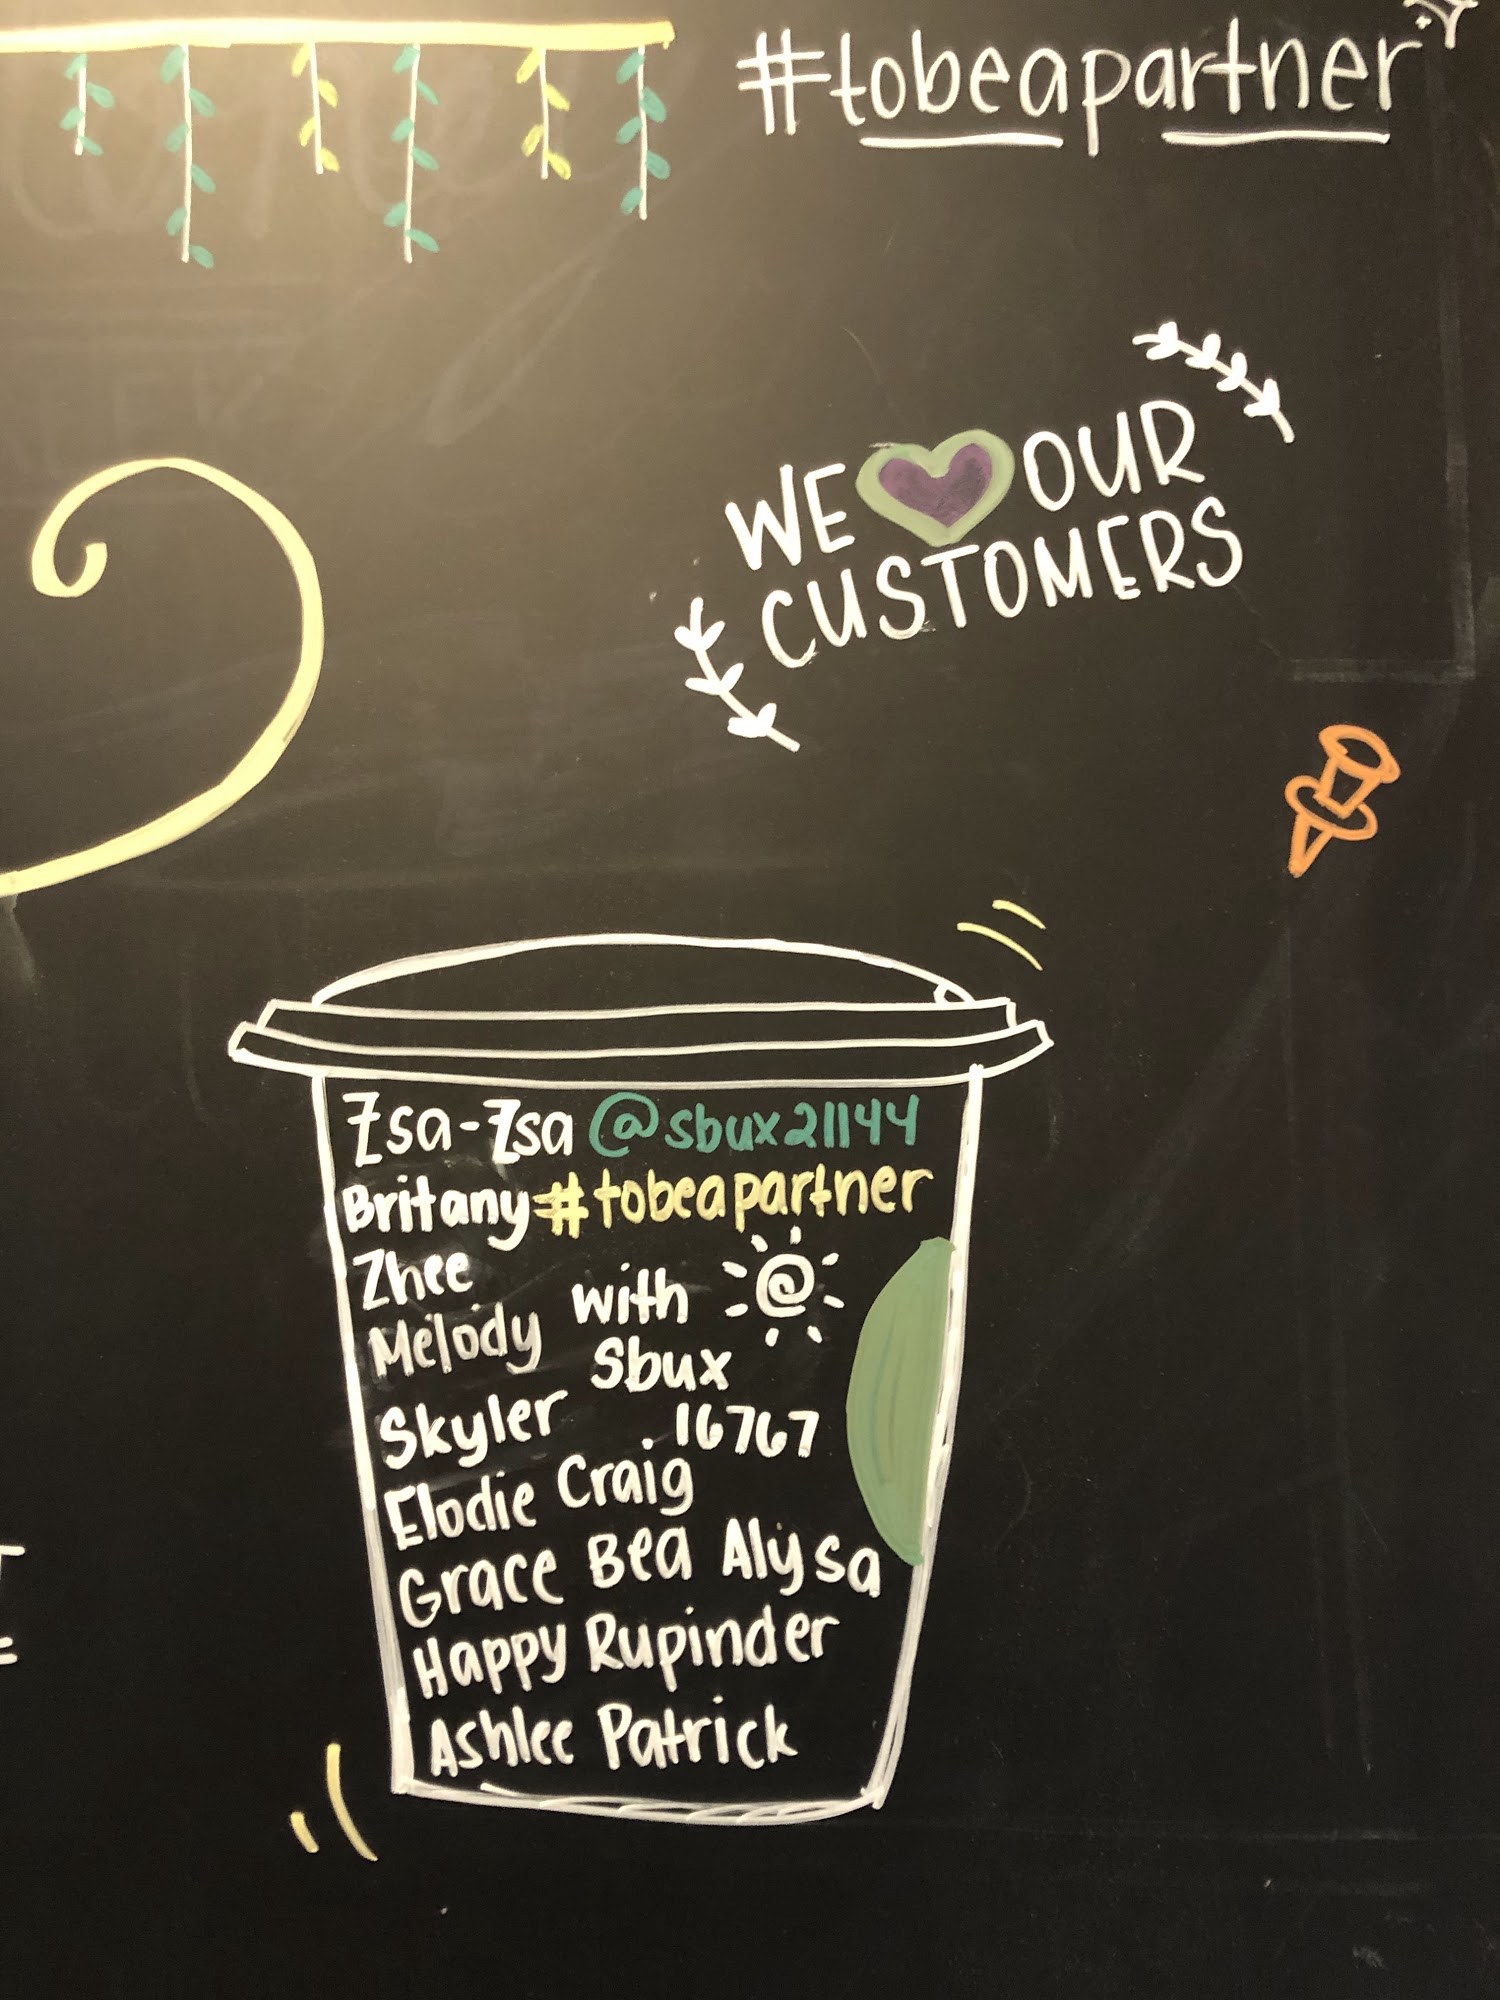 #tobeapartner
WE OUR
CUSTOMERS
Zsa-Zsa @sbux21144
Britany #tobeapartner
Zhee
Melody with @
Sbux
Skyler 16767
Elodie Craig
Grace Bea Alysa
Happy Rupinder
Ashlee Patrick